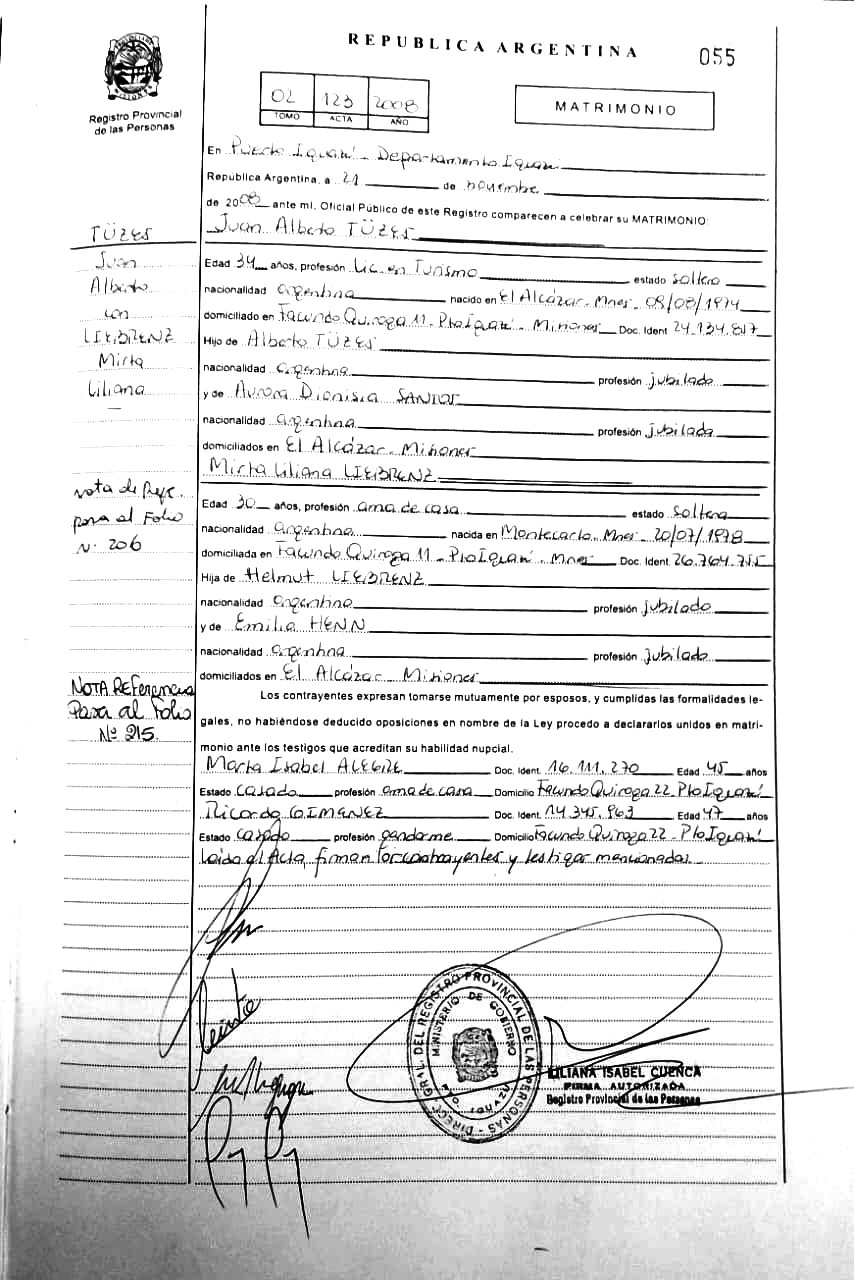 REPUBLICA ARGENTINA
055
Registro Provincial
de las Personas
02 123 2008
TOMO ACTA AÑO
MATRIMONIO
En Puerto Iguazú - Departamento Iguazú
República Argentina, a 21 de noviembre
de 2008 ante mí, Oficial Público de este Registro comparecen a celebrar su MATRIMONIO:
Juan Alberto TÜZES
Edad 34 años, profesión Lic. en Turismo estado soltero
nacionalidad argentina nacido en El Alcázar - Mnes - 08/08/1974
domiciliado en Facundo Quiroga 11 - Pto Iguazú - Misiones Doc. Ident 24.134.817
Hijo de Alberto TÜZES
nacionalidad argentina profesión jubilado
y de Aurora Dionisia SANTOS
nacionalidad argentina profesión jubilada
domiciliados en El Alcázar - Misiones
Mirta Liliana LIEBRENZ
Edad 30 años, profesión ama de casa estado soltera
nacionalidad argentina nacida en Montecarlo - Mnes - 20/07/1978
domiciliada en Facundo Quiroga 11 - Pto Iguazú - Mnes Doc. Ident. 26.764.755
Hija de Helmut LIEBRENZ
nacionalidad argentina profesión jubilado
y de Emilia HENN
nacionalidad argentina profesión jubilada
domiciliados en El Alcázar - Misiones
Los contrayentes expresan tomarse mutuamente por esposos, y cumplidas las formalidades le-
gales, no habiéndose deducido oposiciones en nombre de la Ley procedo a declararlos unidos en matri-
monio ante los testigos que acreditan su habilidad nupcial.
Marta Isabel ALEGRE Doc. Ident. 16.111.270 Edad 45 años
Estado casada profesión ama de casa Domicilio Facundo Quiroga 22 - Pto Iguazú
Ricardo GIMENEZ Doc. Ident. 14.345.963 Edad 47 años
Estado casado profesión gendarme Domicilio Facundo Quiroga 22 - Pto Iguazú
Leída el Acta, firman los contrayentes y testigos mencionados
TÜZES
Juan
Alberto
con
LIEBRENZ
Mirta
Liliana
nota de Refe.
pasa al Folio
N° 206
NOTA REFerencia
Pasa al Folio
Nº 215.
DIRECC. GRAL. DEL REGISTRO PROVINCIAL DE LAS PERSONAS
MINISTERIO DE GOBIERNO
PTO. IGUAZU
LILIANA ISABEL CUENCA
FIRMA AUTORIZADA
Registro Provincial de las Personas